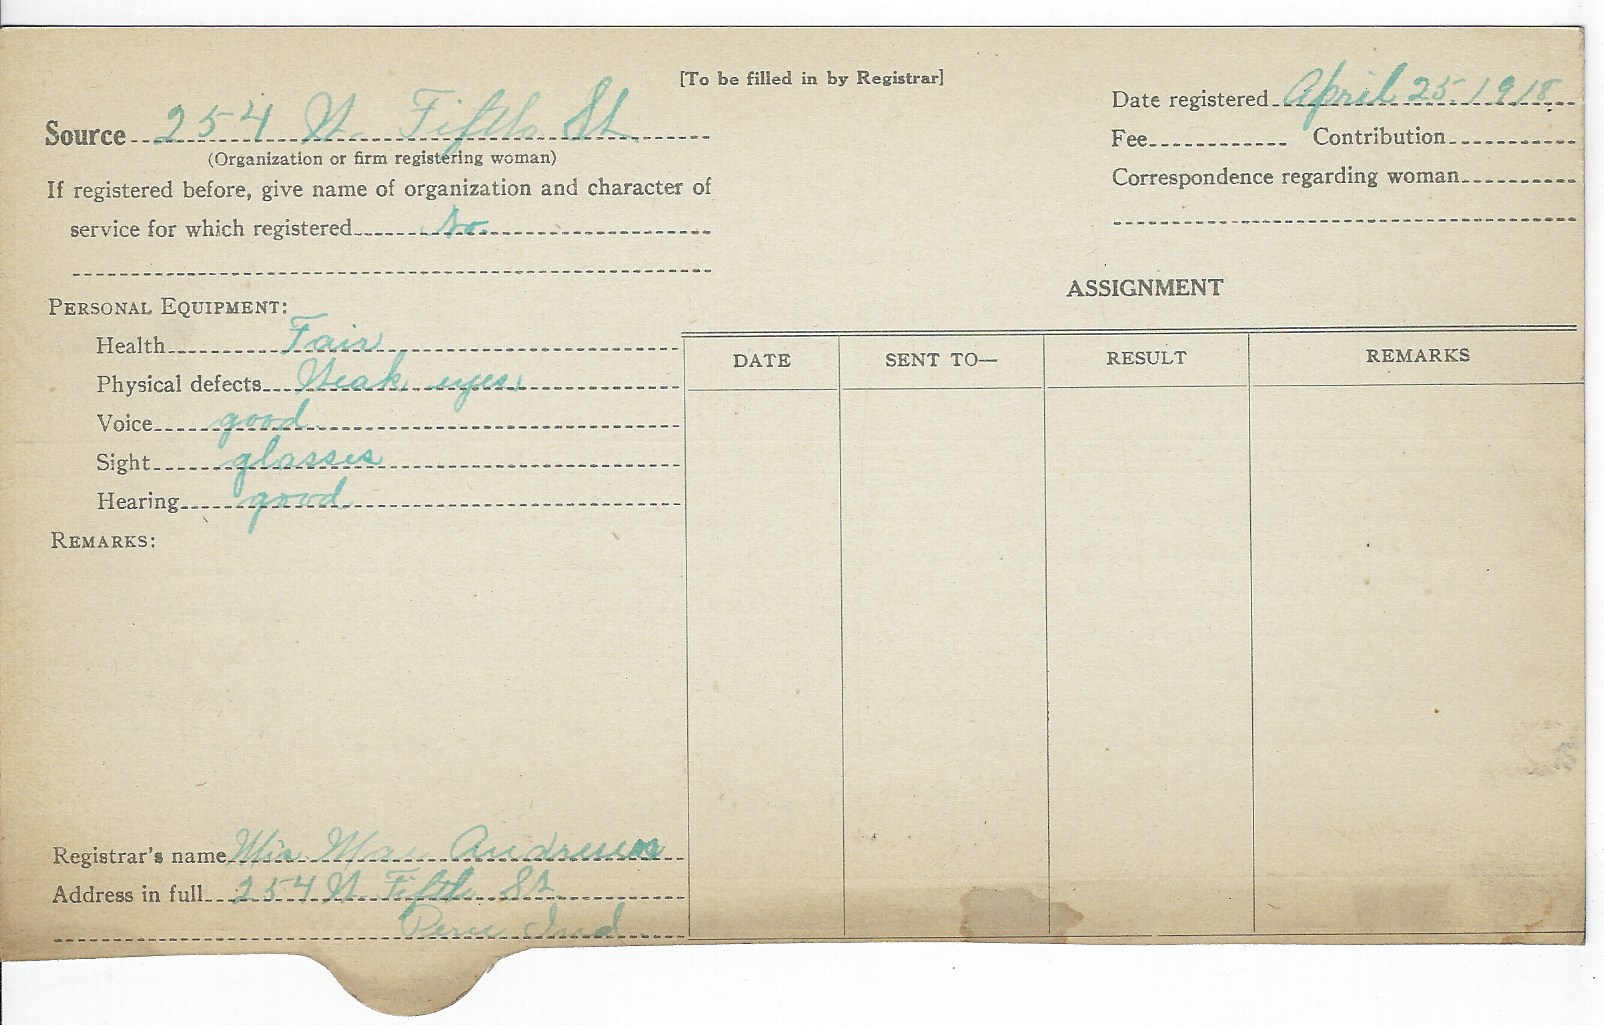 [To be filled in by Registrar]
Source 254 W. Fifth St
(Organization or firm registering woman)
If registered before, give name of organization and character of
service for which registered No
Date registered April 25 1918
Fee Contribution
Correspondence regarding woman
PERSONAL EQUIPMENT:
Health Fair
Physical defects Weak eyes
Voice good
Sight glasses
Hearing good
REMARKS:
ASSIGNMENT
DATE SENT TO— RESULT REMARKS
Registrar's name Mae Andresen
Address in full 254 W. Fifth St
Peru Ind